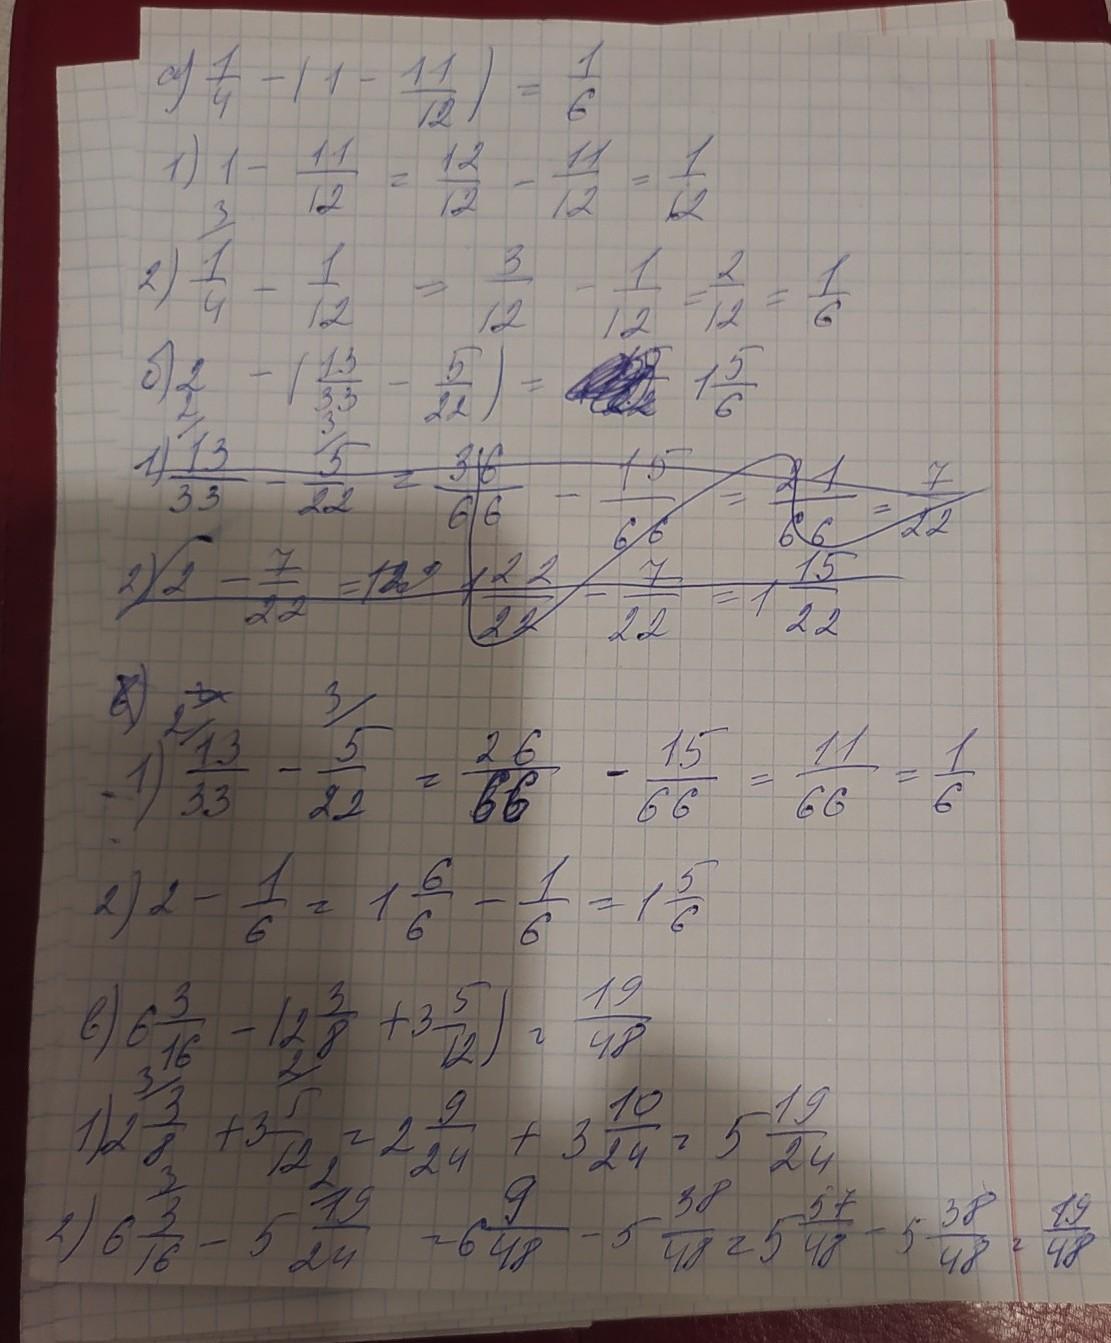 а) 1/4 - (1 - 11/12) = 1/6
1) 1 - 11/12 = 12/12 - 11/12 = 1/12
3
2) 1/4 - 1/12 = 3/12 - 1/12 = 2/12 = 1/6
б) 2 - (13/33 - 5/22) = 1 5/6
2 3
1) 13/33 - 5/22 = 36/66 - 15/66 = 21/66 = 7/22
2) 2 - 7/22 = 1 22/22 - 7/22 = 1 15/22
2 3
1) 13/33 - 5/22 = 26/66 - 15/66 = 11/66 = 1/6
2) 2 - 1/6 = 1 6/6 - 1/6 = 1 5/6
в) 6 3/16 - (2 3/8 + 3 5/12) = 19/48
3 2
1) 2 3/8 + 3 5/12 = 2 9/24 + 3 10/24 = 5 19/24
3 2
2) 6 3/16 - 5 19/24 = 6 9/48 - 5 38/48 = 5 57/48 - 5 38/48 = 19/48